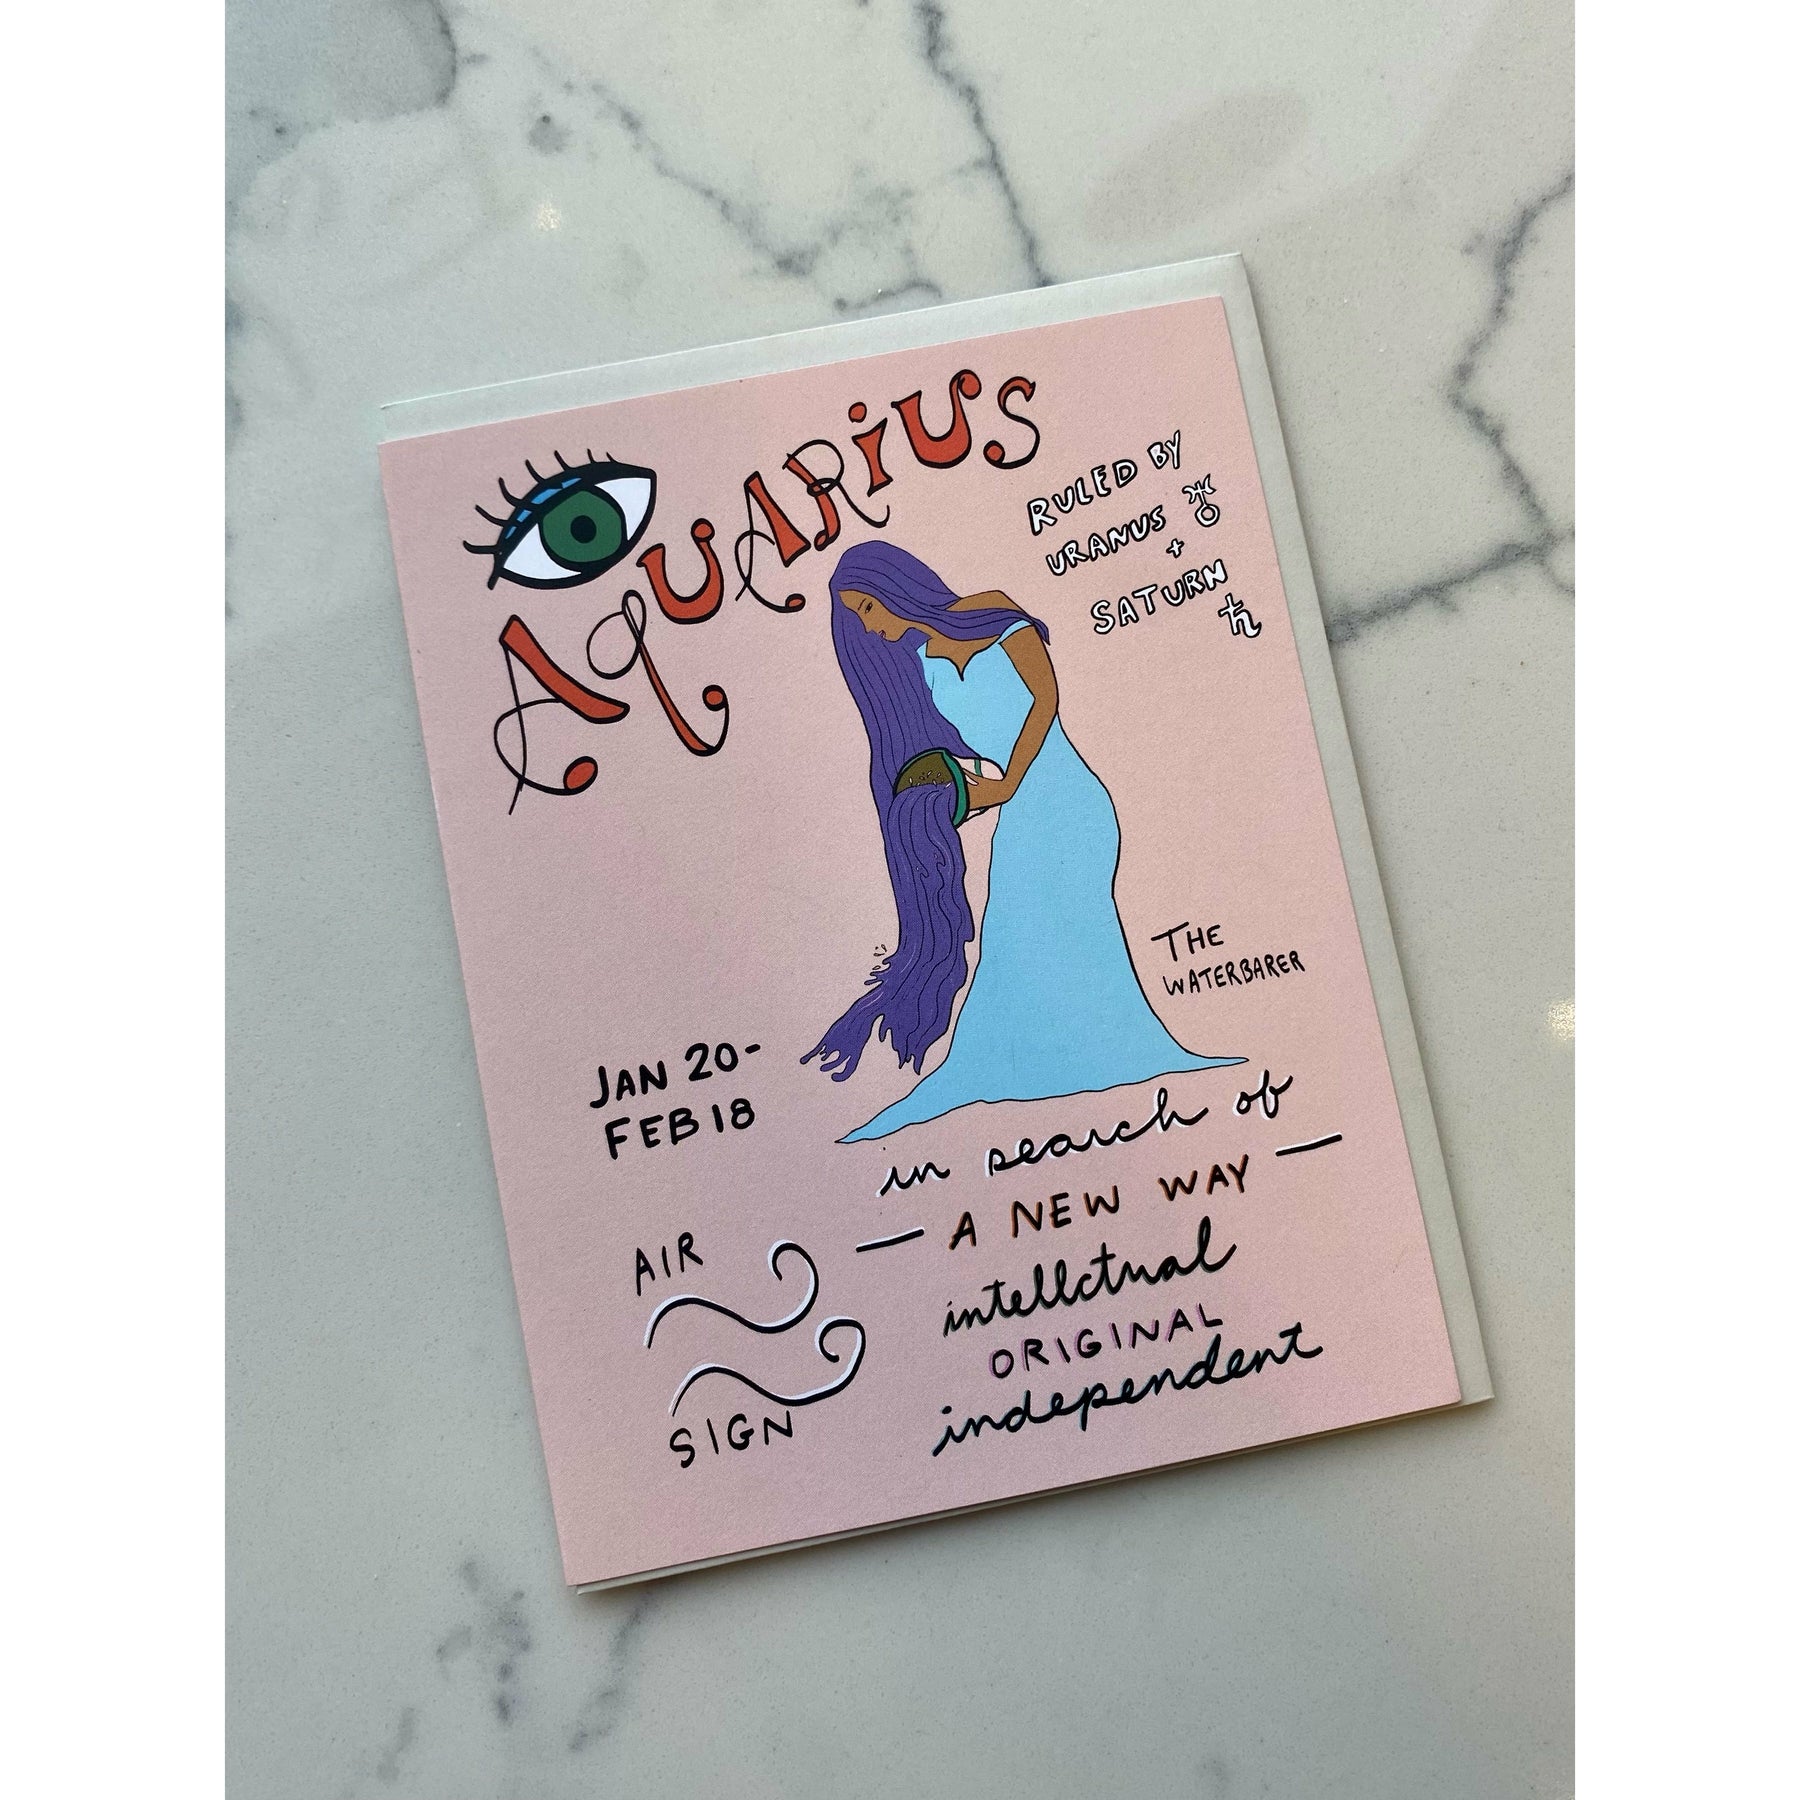 AQUARiUS
RULED BY
URANUS ♅
+
SATURN
♄
THE
WATERBARER
JAN 20-
FEB 18
in search of
— A NEW WAY —
intellctual
ORIGINAL
independent
AIR
SIGN